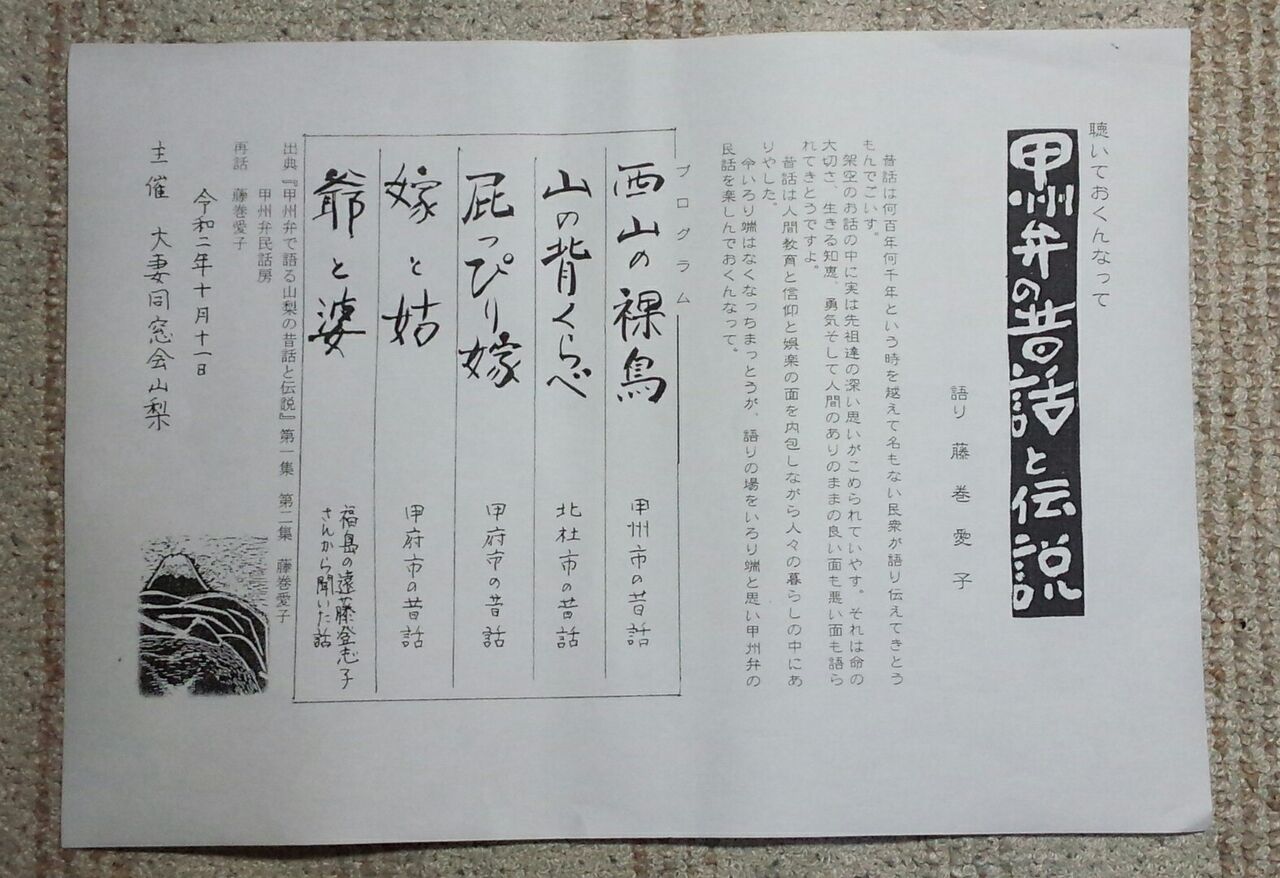 聴いておくんなって
甲州弁の昔話と伝説
語り 藤巻愛子
昔話は何百年何千年という時を越えて名もない民衆が語り伝えてきとう
もんでごいす。
架空のお話の中に実は先祖達の深い思いがこめられていやす。それは命の
大切さ、生きる知恵、勇気そして人間のありのままの良い面も悪い面も語ら
れてきとうですよ。
昔話は人間教育と信仰と娯楽の面を内包しながら人々の暮らしの中にあ
りやした。
今いろり端はなくなっちまっとうが、語りの場をいろり端と思い甲州弁の
民話を楽しんでおくんなって。
プログラム
西山の裸鳥 甲州市の昔話
山の背くらべ 北杜市の昔話
屁っぴり嫁 甲府市の昔話
嫁と姑 甲府市の昔話
爺と婆 福島の遠藤登志子
さんから聞いた話
出典『甲州弁で語る山梨の昔話と伝説』第一集 第二集 藤巻愛子
甲州弁民話房
再話 藤巻愛子
令和二年十月十一日
主催 大妻同窓会山梨